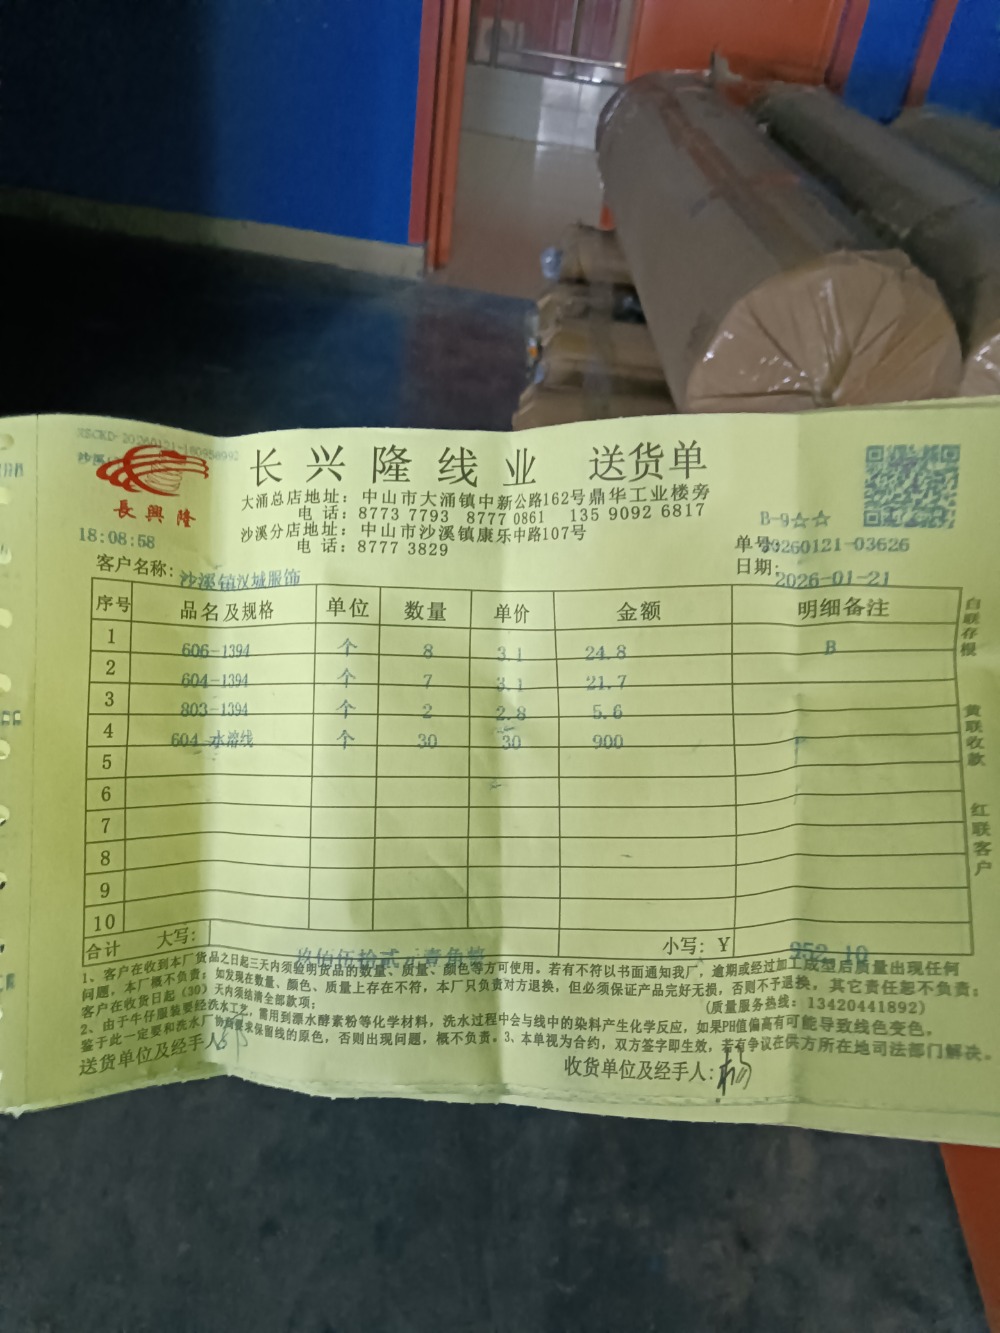 XSCKD-20260121-180958992
沙溪
長興隆
18:08:58
长兴隆线业 送货单
大涌总店地址：中山市大涌镇中新公路162号鼎华工业楼旁
电话：8773 7793 8777 0861 135 9092 6817
沙溪分店地址：中山市沙溪镇康乐中路107号
电话：8777 3829
B-9☆☆
单号：20260121-03626
日期：2026-01-21
客户名称：沙溪镇汉城服饰
序号 品名及规格 单位 数量 单价 金额 明细备注
1 606-1394 个 8 3.1 24.8 B
2 604-1394 个 7 3.1 21.7
3 803-1394 个 2 2.8 5.6
4 604-水溶线 个 30 30 900
5
6
7
8
9
10
合计 大写：玖佰伍拾贰元壹角整 小写：Y 952.10
白联存根 黄联收款 红联客户
1、客户在收到本厂货品之日起三天内须验明货品的数量、质量、颜色等方可使用。若有不符以书面通知我厂，逾期或经过加工成型后质量出现任何
问题，本厂概不负责；如发现在数量、颜色、质量上存在不符，本厂只负责对方退换，但必须保证产品完好无损，否则不予退换，其它责任恕不负责；
客户在收货日起（30）天内须结清全部款项； （质量服务热线：13420441892）
2、由于牛仔服装要经洗水工艺，需用到漂水酵素粉等化学材料，洗水过程中会与线中的染料产生化学反应，如果PH值偏高有可能导致线色变色，
鉴于此一定要和洗水厂协商要求保留线的原色，否则出现问题，概不负责。3、本单视为合约，双方签字即生效，若有争议在供方所在地司法部门解决。
送货单位及经手人：
收货单位及经手人：杨